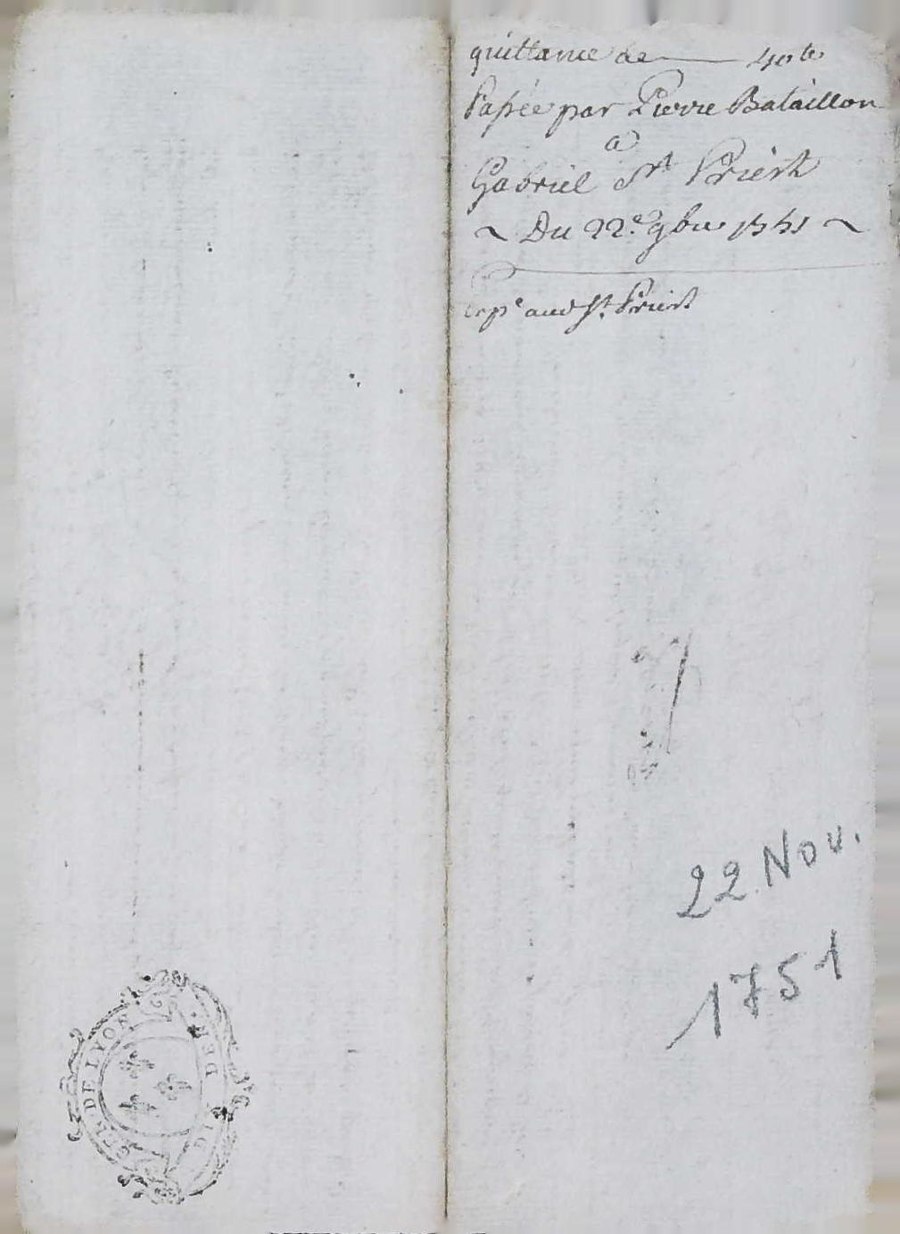 quittance de 40 lt
Passée par Pierre Bataillon
a
Gabriel St Priest
~ Du 22e 9bre 1751 ~
aud St Priest
22 Nov.
1751
GEN DE LYON
DEN